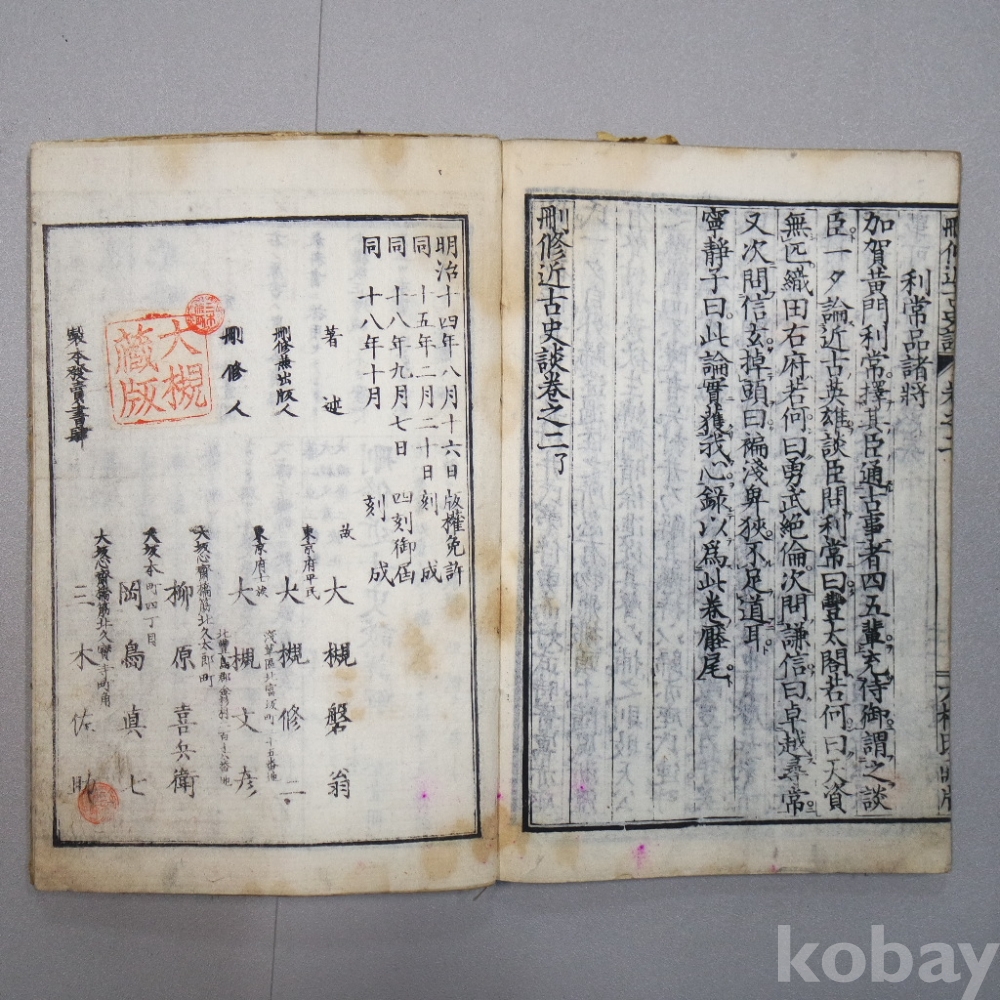 刪修近古史談 卷之二
利常品諸將
加賀黃門利常擇其臣通古事者四五輩充侍御謂之談
臣一夕論近古英雄談臣問利常曰豐太閤若何曰天資
無匹織田右府若何曰勇武絕倫次問謙信曰卓越尋常
又次問信玄掉頭曰褊淺卑狹不足道耳
寧靜子曰此論實獲我心錄以爲此卷壓尾
刪修近古史談卷之二了
明治十四年八月十六日版權免許
同 十五年二月二十日刻成
同 十八年九月七日 四刻御屆
同 十八年十月 刻成
著述 故 大槻磐翁
刪修兼出版人 東京府平民 大槻修二
淺草區北富坂町二十五番地
刪修人 東京府士族 大槻文彥
大槻藏版
製本發賣書肆
大坂心齋橋筋北久太郎町 柳原喜兵衛
大坂本町四丁目 岡島眞七
大坂心齋橋筋北久寶寺町角 三木佐助
kobay